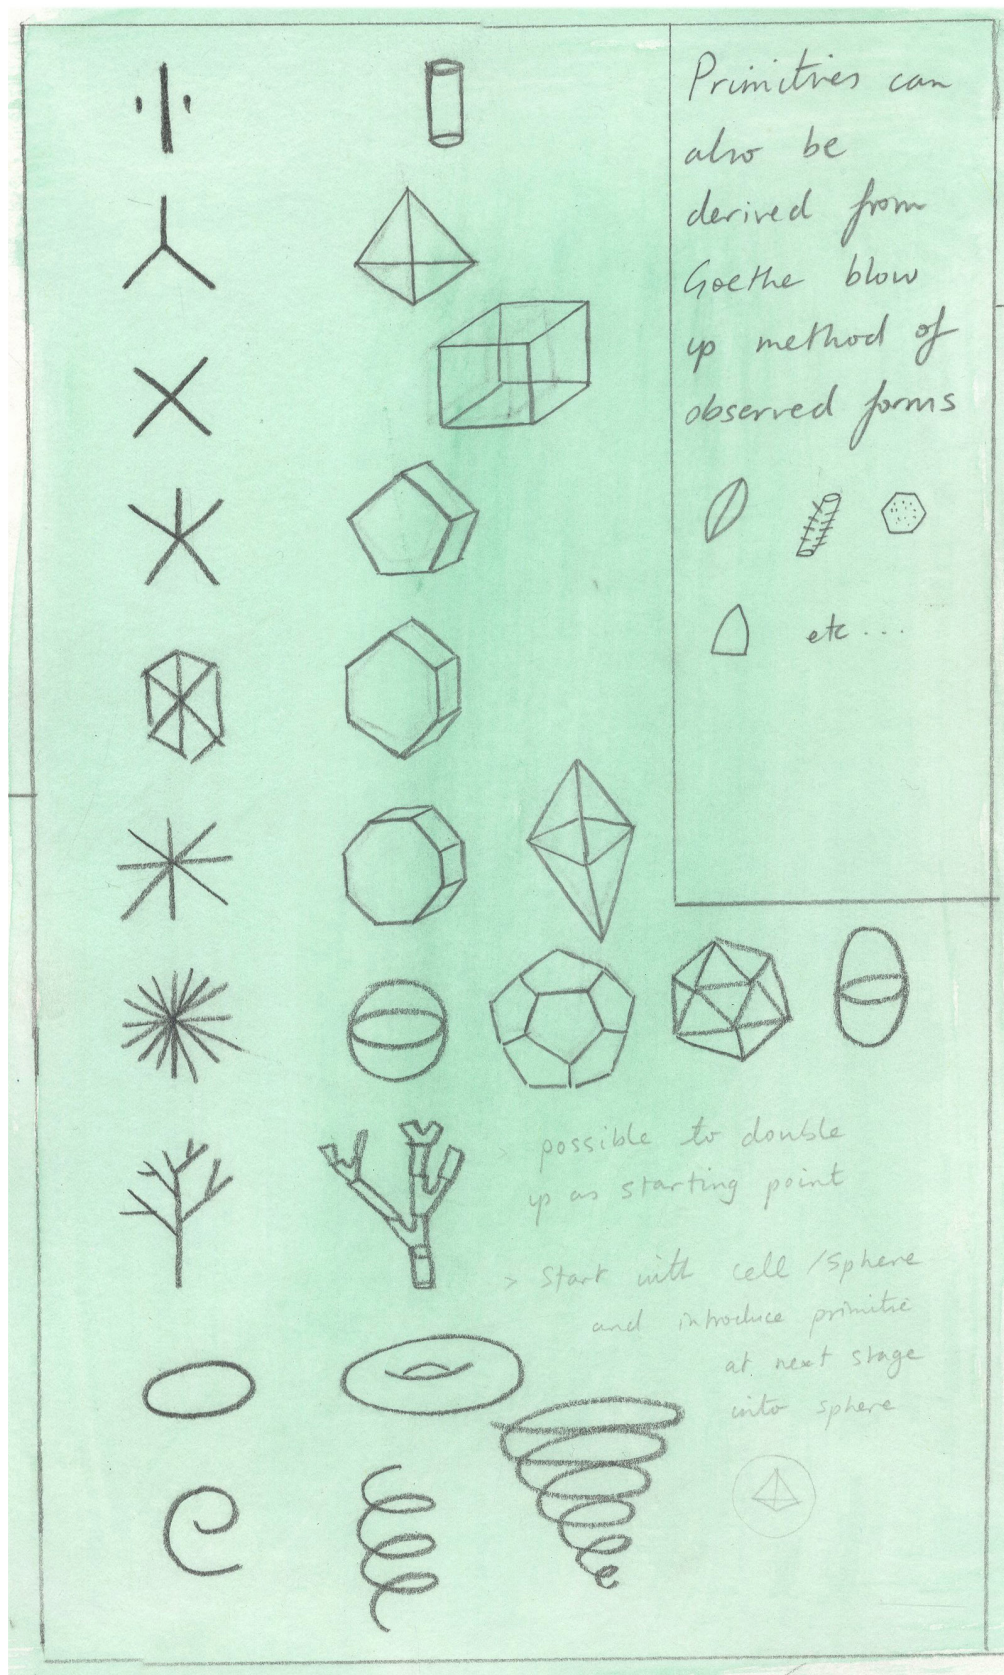 Primitives can
also be
derived from
Goethe blow
up method of
observed forms
etc ...
> possible to double
up as starting point
> Start with cell / sphere
and introduce primitive
at next stage
into sphere